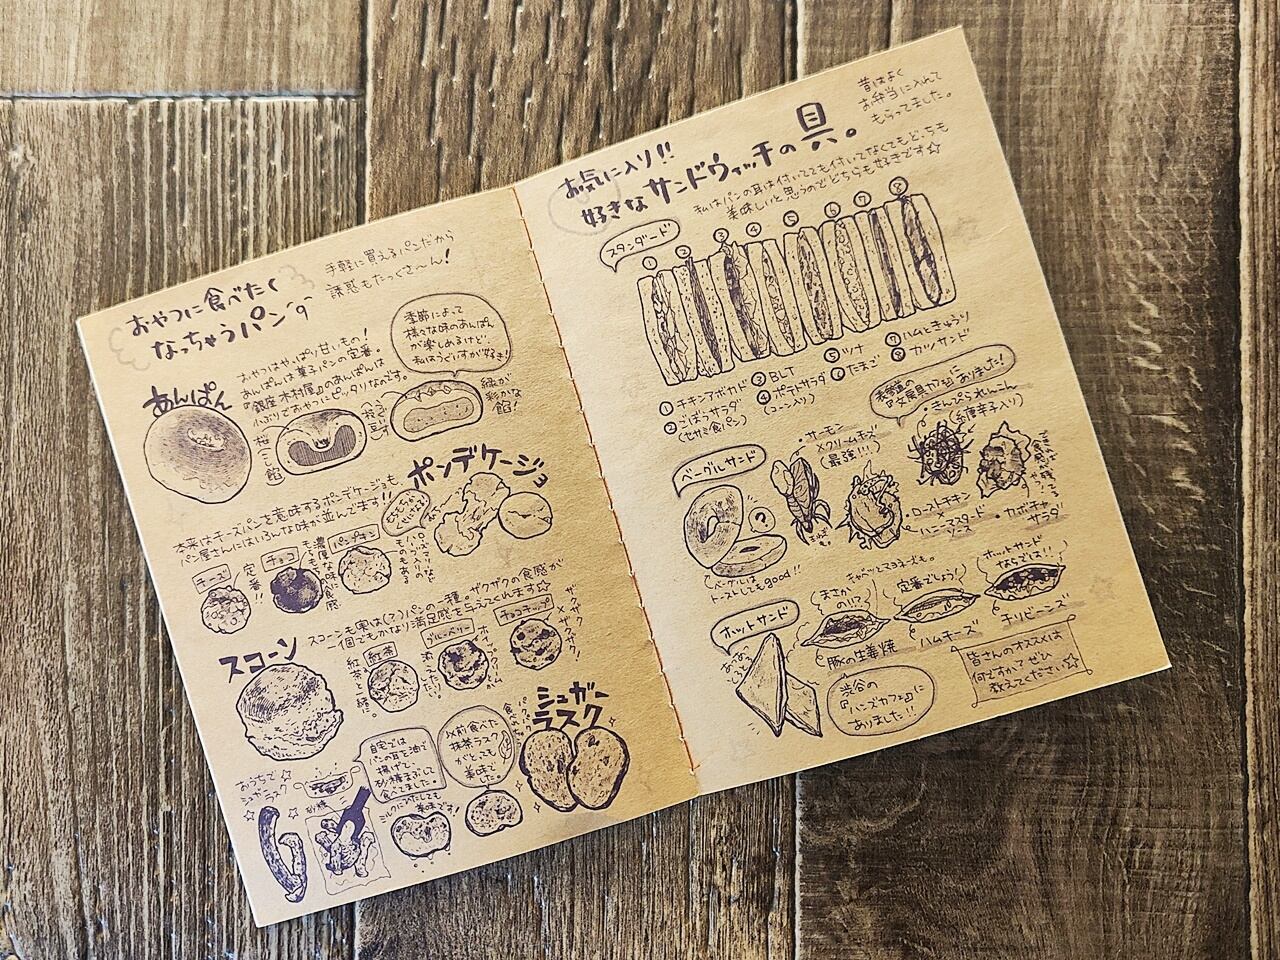 おやつに食べたく
なっちゃうパン
手軽に買えるパンだから
誘惑もたっくさ〜ん!
あんぱん
おやつはやっぱり甘いもの!
あんぱんは菓子パンの定番。
『銀座木村屋』のあんぱんは
小ぶりでおやつにピッタリなのです。
季節によって
様々な味のあんぱん
が楽しめるけど、
私はうぐいすが好き!
緑が
彩かな
餡!
ポンデケージョ
本来はチーズパンを意味するポンデケージョも、
パン屋さんにはいろんな味が並んでます!!
チーズ
定番!!
チョコ
濃厚な味に
パンプキン
スコーン
スコーンも実は(?)パンの一種。ザクザクの食感が
一個でもかなり満足感を与えてくれます☆
紅茶
紅茶と
ブルーベリー
チョコチップ
ザクザク
シュガー
ラスク
おうちで
シュガーラスク
砂糖
自宅では
パンの耳を油で
揚げて、
砂糖まぶして
食べてました。
以前食べた
抹茶ラスク
がとても
美味で
した。
ミルクに入れたしても
美味です!
お気に入り!!
好きなサンドウィッチの具。
昔はよく
お弁当に入れて
もらってました。
私はパンの耳は付いてても付いてなくてもどっちも
美味しいと思うのでどちらも好きです☆
スタンダード
① ② ③ ④ ⑤ ⑥ ⑦ ⑧
① チキンアボカド
② ごぼうサラダ
(セサミ食パン)
③ BLT
④ ポテトサラダ
(コーン入り)
⑤ ツナ
⑥ たまご
⑦ ハムときゅうり
⑧ カツサンド
ベーグルサンド
・サーモン
×クリームチーズ
(最強!!!)
表参道の
『文房具カフェ』に
ありました!
・きんぴられんこん
(糸唐辛子入り)
・ローストチキン
ハニーマスタード
・カボチャ
サラダ
ベーグルは
トーストしてもgood!!
ホットサンド
まさか
の!!?
豚の生姜焼
キャベツとマヨネーズも。
定番でしょう!
ハムチーズ
ホットサンド
ならでは!!
チリビーンズ
渋谷の
『ハンズカフェ』に
ありました!!
皆さんのオススメは
何ですか?ぜひ
教えてください☆